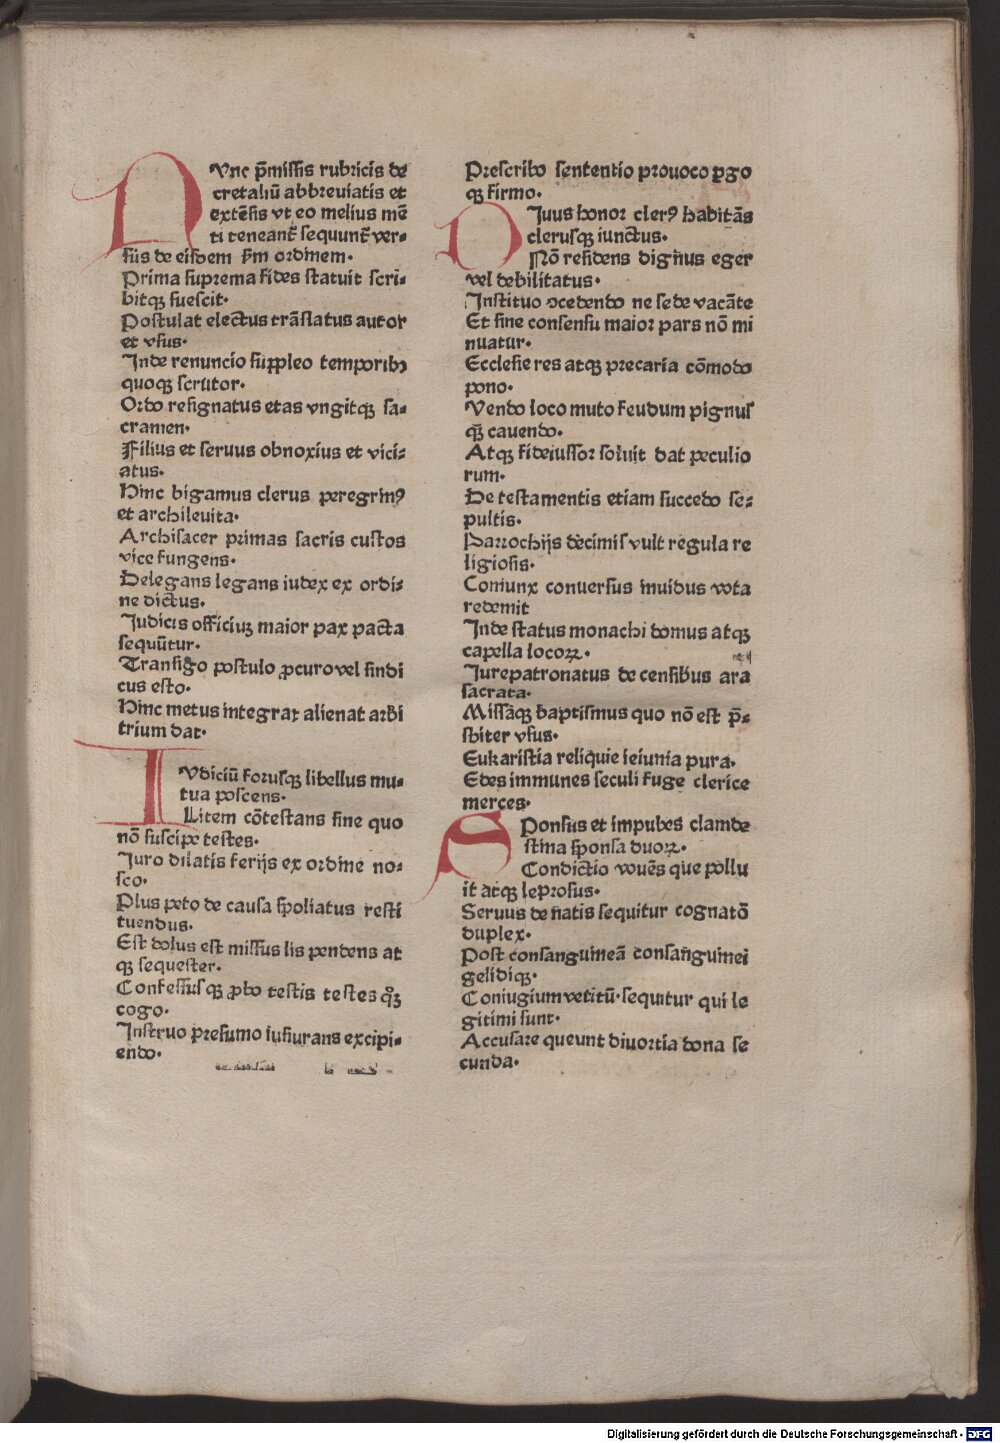 NVnc p̄missis rubricis de
cretaliū abbreuiatis et
extēsis vt eo melius mē
ti teneant̄ sequunt̄ ver⸗
sus de eisdem s̄m ordinem.
Prima suprema fides statuit scri⸗
bitqꝫ suescit.
Postulat electus trāslatus autor
et vsus.
Inde renuncio suppleo temporibꝰ
quoqꝫ scrutor.
Ordo resignatus etas vngitqꝫ sa⸗
cramen.
Filius et seruus obnoxius et vici⸗
atus.
Hinc bigamus clerus peregrinꝰ
et archileuita.
Archisacer primas sacris custos
vice fungens.
Delegans legans iudex ex ordi⸗
ne dictus.
Judicis officiuꝫ maior pax pacta
sequūtur.
Transigo postulo ꝓcuro vel sindi
cus esto.
Hinc metus integrat alienat arbi
trium dat.
IVdiciū forusqꝫ libellus mu⸗
tua poscens.
Litem cōtestans sine quo
nō suscipe testes.
Juro dilatis ferijs ex ordine no⸗
sco.
Plus peto de causa spoliatus resti
tuendus.
Est dolus est missus lis pendens at
qꝫ sequester.
Confessusqꝫ ꝓbo testis testes qꝫ
cogo.
Instruo presumo iusiurans excipi⸗
endo.
Prescribo sententio prouoco ꝑgo
qꝫ firmo.
DIuus honor clerꝰ habitās
clerusqꝫ iunctus.
Nō residens dign̄us eger
vel debilitatus.
Instituo ꝯcedendo ne sede vacāte
Et sine consensu maior pars nō mi
nuatur.
Ecclesie res atqꝫ precaria cōmodo
pono.
Vendo loco muto feudum pignus
qꝫ̄ cauendo.
Atqꝫ fideiussor soluit dat peculio
rum.
De testamentis etiam succedo se⸗
pultis.
Parrochijs decimis vult regula re
ligiosis.
Coniunx conuersus inuidus vota
redemit
Inde status monachi domus atqꝫ
capella locoꝝ.
Jurepatronatus de censibus ara
sacrata.
Missāqꝫ baptismus quo nō est p̄⸗
sbiter vsus.
Eukaristia reliquie ieiunia pura.
Edes immunes seculi fuge clerice
merces.
SPonsus et impubes clamde
stina sponsa duoꝝ.
Condictio vouēs que pollu
it atqꝫ leprosus.
Seruus de n̄atis sequitur cognatō
duplex.
Post consanguineā consan̄guinei
gelidiqꝫ.
Coniugium vetitū.sequitur qui le
gitimi sunt.
Accusare queunt diuortia dona se
cunda.
Digitalisierung gefördert durch die Deutsche Forschungsgemeinschaft - DFG